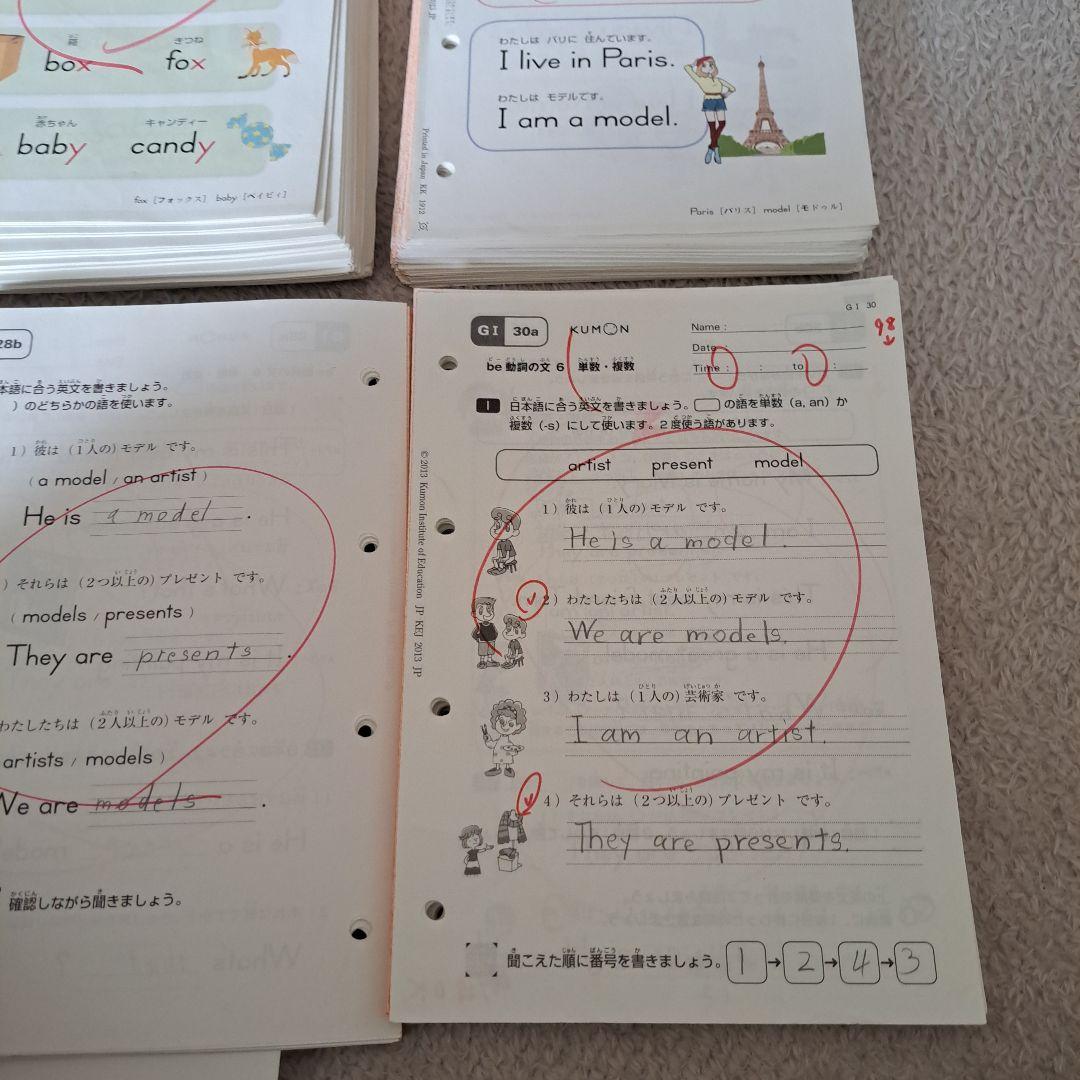 箱 きつね
box fox
赤ちゃん キャンディー
baby candy
fox [フォックス] baby [ベイビィ]
わたしは パリに 住んでいます。
I live in Paris.
わたしは モデルです。
I am a model.
Printed in Japan KK 1912
Paris [パリス] model [モドゥル]
28b
日本語に合う英文を書きましょう。
)のどちらかの語を使います。
1) 彼は (1人の) モデル です。
( a model / an artist )
He is a model .
) それらは (2つ以上の) プレゼント です。
( models / presents )
They are presents .
わたしたちは (2人以上の) モデル です。
artists / models )
We are models .
確認しながら聞きましょう。
GⅠ 30
GⅠ 30a KUMON
Name :
Date :
Time : : to :
98
be動詞の文 6 単数・複数
1 日本語に合う英文を書きましょう。 の語を単数 (a, an) か
複数 (-s) にして使います。2度使う語があります。
artist present model
1) 彼は (1人の) モデル です。
He is a model.
2) わたしたちは (2人以上の) モデル です。
We are models.
3) わたしは (1人の) 芸術家 です。
I am an artist.
4) それらは (2つ以上の) プレゼント です。
They are presents.
聞こえた順に番号を書きましょう。 1 → 2 → 4 → 3
© 2013 Kumon Institute of Education JP KEJ 2013 JP